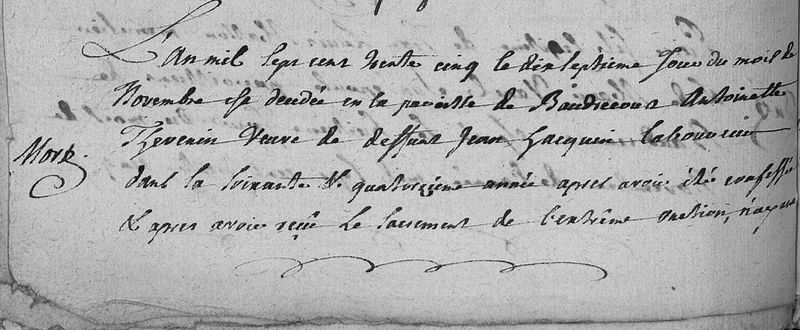 L'an mil sept cent trente cinq le dix septième Jour du mois de
Novembre est decedée en la paroisse de Baudrecourt Antoinette
Thevenin veuve de deffunt Jean Jacquin laboureur
Mort
dans la soixante & quatorzième année apres avoir été confessée
& apres avoir reçüe Le sacrement de l'entrême onction, n'ayant